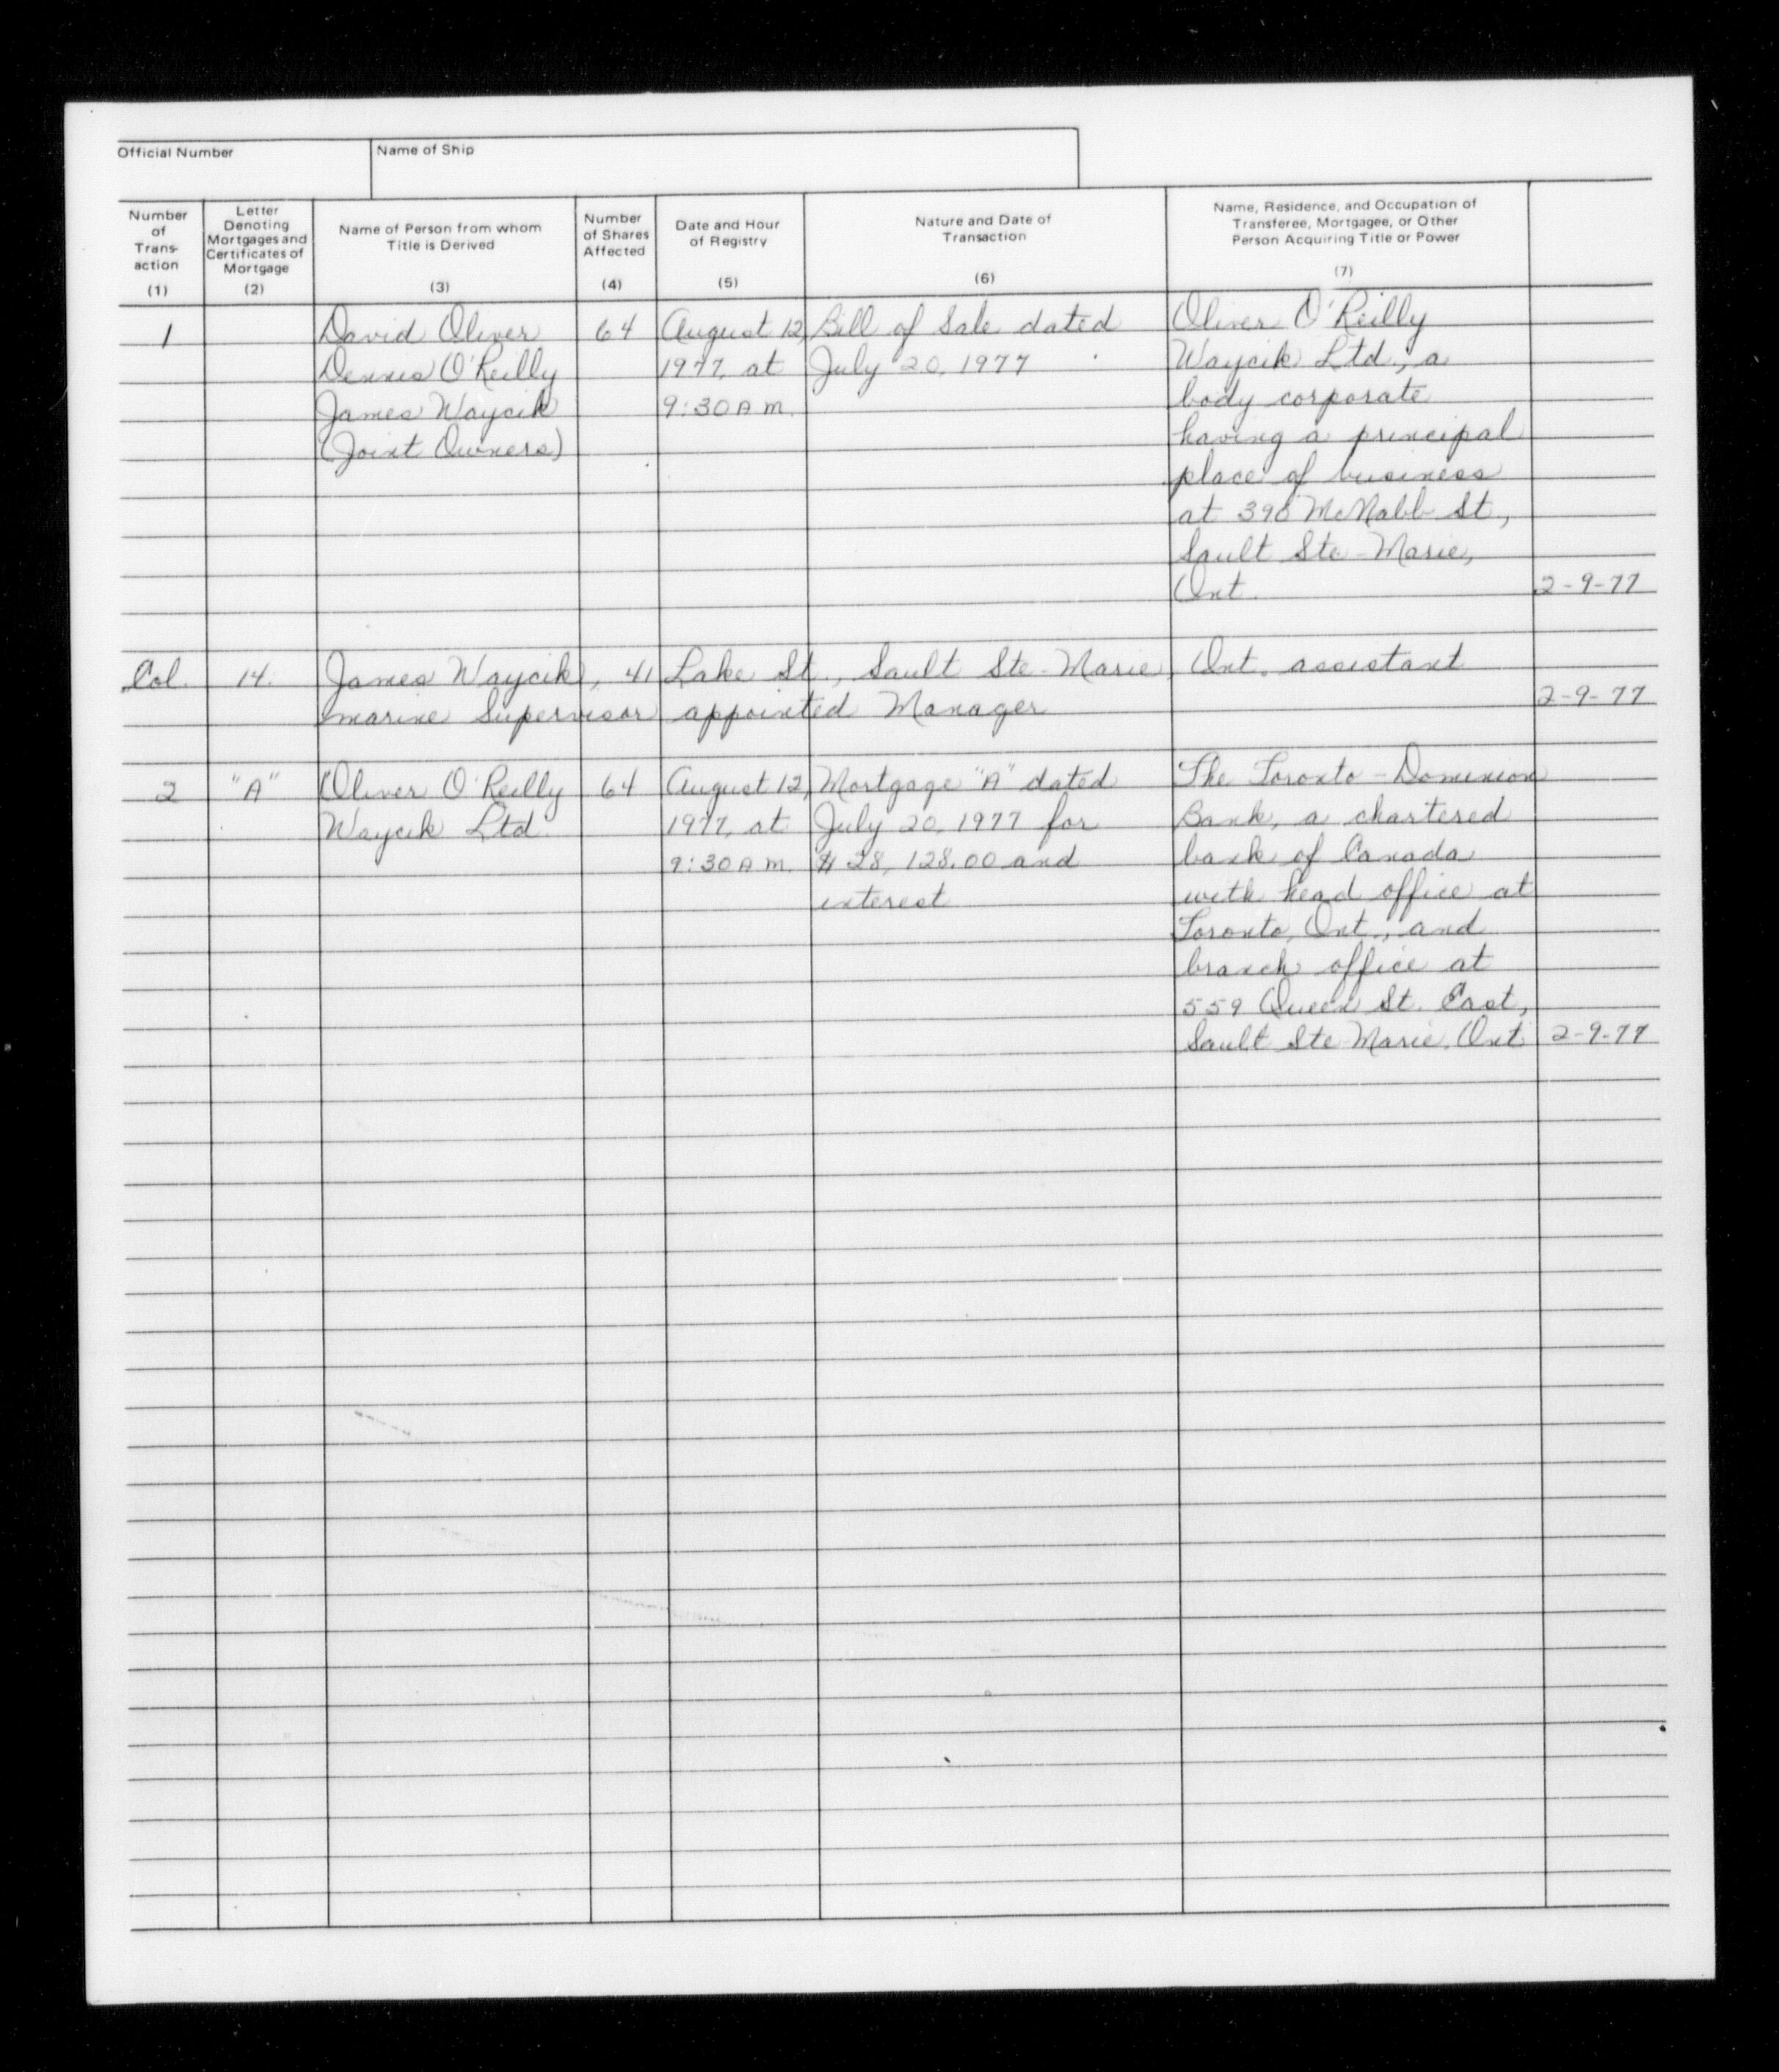 Official Number
Name of Ship
Number of Trans- action (1)
Letter Denoting Mortgages and Certificates of Mortgage (2)
Name of Person from whom Title is Derived (3)
Number of Shares Affected (4)
Date and Hour of Registry (5)
Nature and Date of Transaction (6)
Name, Residence, and Occupation of Transferee, Mortgagee, or Other Person Acquiring Title or Power (7)
1
David Oliver
Dennis O'Reilly
James Waycik
(Joint Owners)
64
August 12,
1977, at
9:30 A.M.
Bill of Sale dated
July 20, 1977
Oliver O'Reilly
Waycik Ltd., a
body corporate
having a principal
place of business
at 390 McNabb St.,
Sault Ste-Marie,
Ont.
2-9-77
Col. 14. James Waycik, 41 Lake St., Sault Ste-Marie, Ont. assistant
marine Supervisor appointed Manager
2-9-77
2
"A"
Oliver O'Reilly
Waycik Ltd.
64
August 12,
1977, at
9:30 A.M.
Mortgage "A" dated
July 20, 1977 for
$28,128.00 and
interest
The Toronto-Dominion
Bank, a chartered
bank of Canada
with head office at
Toronto, Ont., and
branch office at
559 Queen St. East,
Sault Ste-Marie, Ont.
2-9-77